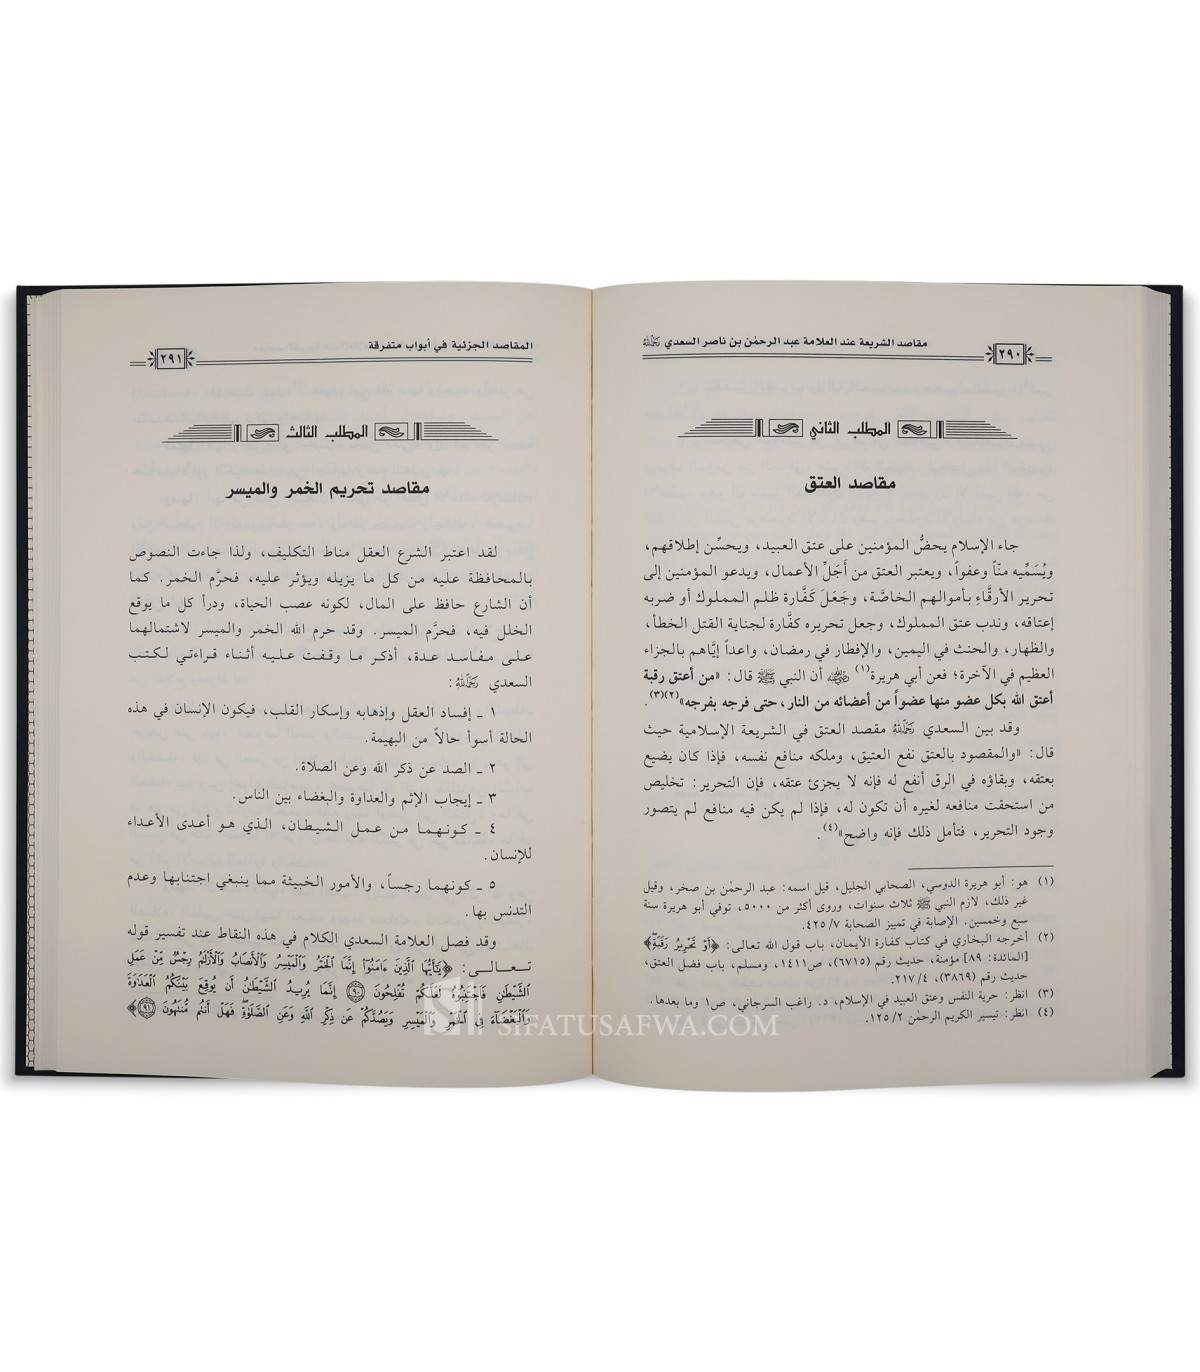 مقاصد الشريعة عند العلامة عبد الرحمٰن بن ناصر السعدي رَحِمَهُ اللهُ
٢٩٠
المطلب الثاني
مقاصد العتق
جاء الإسلام يحضُّ المؤمنين على عتق العبيد، ويحسِّن إطلاقهم،
ويُسَمِّيه منّاً وعفواً، ويعتبر العتق من أَجَلِّ الأعمال، ويدعو المؤمنين إلى
تحرير الأرقَّاء بأموالهم الخاصَّة، وجَعَلَ كَفَّارة ظلم المملوك أو ضربه
إعتاقه، وندب عتق المملوك، وجعل تحريره كفَّارة لجناية القتل الخطأ،
والظهار، والحنث في اليمين، والإفطار في رمضان، واعداً إيَّاهم بالجزاء
العظيم في الآخرة؛ فعن أبي هريرة(١) رضي الله عنه أن النبي ﷺ قال: «من أعتق رقبة
أعتق الله بكل عضو منها عضواً من أعضائه من النار، حتى فرجه بفرجه»(٢)(٣).
وقد بين السعدي رَحِمَهُ اللهُ مقصد العتق في الشريعة الإسلامية حيث
قال: «والمقصود بالعتق نفع العتيق، وملكه منافع نفسه، فإذا كان يضيع
بعتقه، وبقاؤه في الرق أنفع له فإنه لا يجزئ عتقه، فإن التحرير: تخليص
من استحقت منافعه لغيره أن تكون له، فإذا لم يكن فيه منافع لم يتصور
وجود التحرير، فتأمل ذلك فإنه واضح»(٤).
(١) هو: أبو هريرة الدوسي، الصحابي الجليل، قيل اسمه: عبد الرحمٰن بن صخر، وقيل
غير ذلك، لازم النبي ﷺ ثلاث سنوات، وروى أكثر من ٥٠٠٠، توفي أبو هريرة سنة
سبع وخمسين. الإصابة في تمييز الصحابة ٧/ ٤٢٥.
(٢) أخرجه البخاري في كتاب كفارة الأيمان، باب قول الله تعالى: ﴿أَوْ تَحْرِيرُ رَقَبَةٍ﴾
[المائدة: ٨٩] مؤمنة، حديث رقم (٦٧١٥)، ص١٤١١، ومسلم، باب فضل العتق،
حديث رقم (٣٨٦٩)، ٤/ ٢١٧.
(٣) انظر: حرية النفس وعتق العبيد في الإسلام، د. راغب السرجاني، ص١ وما بعدها.
(٤) انظر: تيسير الكريم الرحمٰن ٢/ ١٢٥.
المقاصد الجزئية في أبواب متفرقة
٢٩١
المطلب الثالث
مقاصد تحريم الخمر والميسر
لقد اعتبر الشرع العقل مناط التكليف، ولذا جاءت النصوص
بالمحافظة عليه من كل ما يزيله ويؤثر عليه، فحرَّم الخمر. كما
أن الشارع حافظ على المال، لكونه عصب الحياة، ودرأ كل ما يوقع
الخلل فيه، فحرَّم الميسر. وقد حرم الله الخمر والميسر لاشتمالهما
على مفاسد عدة، أذكر ما وقفت عليه أثناء قراءتي لكتب
السعدي رَحِمَهُ اللهُ:
١ ـ إفساد العقل وإذهابه وإسكار القلب، فيكون الإنسان في هذه
الحالة أسوأ حالاً من البهيمة.
٢ ـ الصد عن ذكر الله وعن الصلاة.
٣ ـ إيجاب الإثم والعداوة والبغضاء بين الناس.
٤ ـ كونهما من عمل الشيطان، الذي هو أعدى الأعداء
للإنسان.
٥ ـ كونهما رجساً، والأمور الخبيثة مما ينبغي اجتنابها وعدم
التدنس بها.
وقد فصل العلامة السعدي الكلام في هذه النقاط عند تفسير قوله
تعالى: ﴿يَٰٓأَيُّهَا ٱلَّذِينَ ءَامَنُوٓا۟ إِنَّمَا ٱلْخَمْرُ وَٱلْمَيْسِرُ وَٱلْأَنصَابُ وَٱلْأَزْلَٰمُ رِجْسٌ مِّنْ عَمَلِ
ٱلشَّيْطَٰنِ فَٱجْتَنِبُوهُ لَعَلَّكُمْ تُفْلِحُونَ ۝٩٠ إِنَّمَا يُرِيدُ ٱلشَّيْطَٰنُ أَن يُوقِعَ بَيْنَكُمُ ٱلْعَدَٰوَةَ
وَٱلْبَغْضَآءَ فِى ٱلْخَمْرِ وَٱلْمَيْسِرِ وَيَصُدَّكُمْ عَن ذِكْرِ ٱللَّهِ وَعَنِ ٱلصَّلَوٰةِ فَهَلْ أَنتُم مُّنتَهُونَ ۝٩١﴾
SIFATUSAFWA.COM